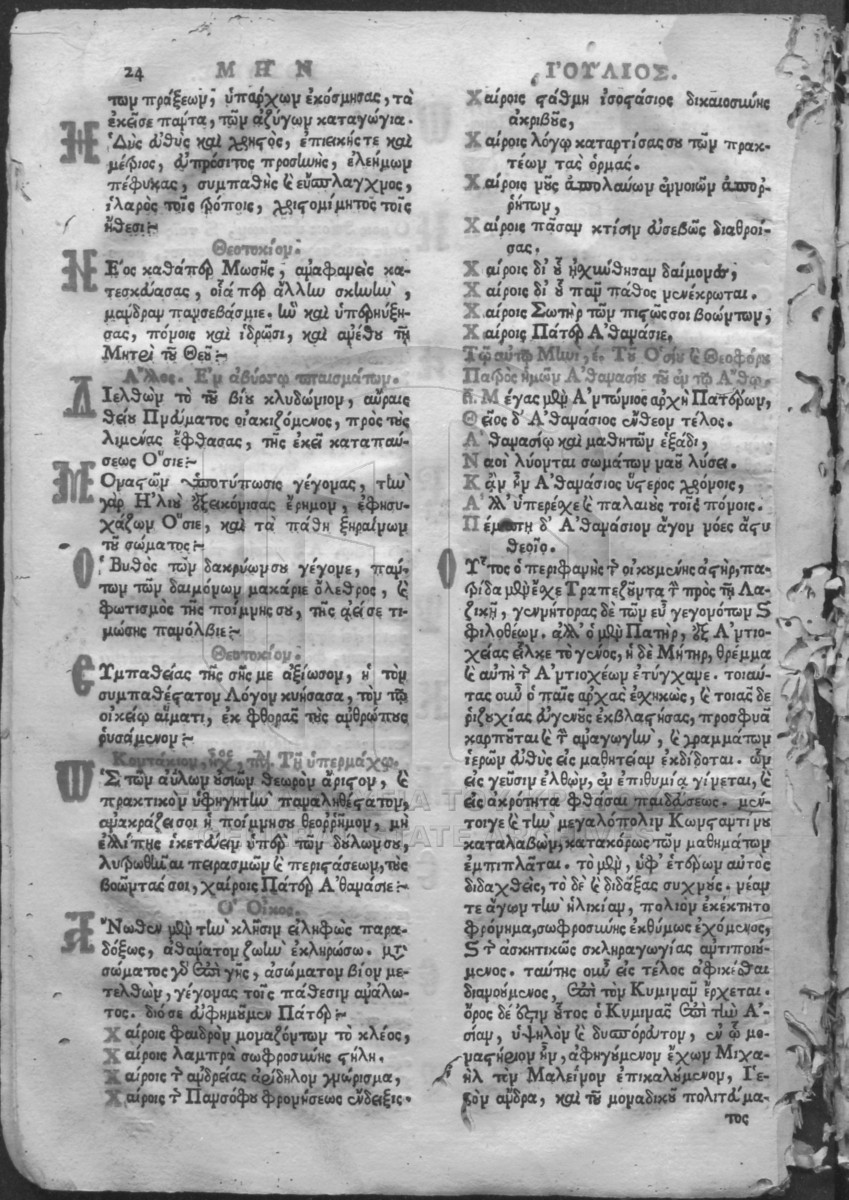 24 ΜΗΝ ΙΟΥΛΙΟΣ.
των πράξεων, ὑπάρχων ἐκόσμησας, τὰ
ἐκεῖσε πάντα, τῶν ἀζύγων καταγώγια.
Ἡδὺς εὐθὺς καὶ χρηστὸς, ἐπιεικής τε καὶ
μέτριος, εὐπρόσιτος προσηνὴς, ἐλεήμων
πέφυκας, συμπαθὴς καὶ εὔσπλαγχνος,
ἱλαρὸς τοῖς τρόποις, χριστομίμητος τοῖς
ἤθεσι:
Θεοτοκίον.
Νέος καθάπερ Μωσῆς, ἀναφανεὶς κα-
τεσκεύασας, οἷά περ ἄλλην σκηνὴν,
μάνδραν πανσεβάσμιε. ἣν καὶ ὑπερηύξη-
σας, πόνοις καὶ ἱδρῶσι, καὶ ἀνέθου τῇ
Μητρὶ τοῦ Θεοῦ:
Ἄλλος. Ἐν ἀβύσσῳ πταισμάτων.
Διελθὼν τὸ τοῦ βίου κλυδώνιον, αὔραις
θείου Πνεύματος οἰακιζόμενος, πρὸς τοὺς
λιμένας ἔφθασας, τῆς ἐκεῖ καταπαύ-
σεως Ὅσιε:
Μοναστῶν ἀποτύπωσις γέγονας, τὴν
γὰρ Ἠλιοὺ ἐξεικόνισας ἔρημον, ἐφησυ-
χάζων Ὅσιε, καὶ τὰ πάθη ξηραίνων
τοῦ σώματος:
Ὁ βυθὸς τῶν δακρύων σου γέγονε, πάν-
των τῶν δαιμόνων μακάριε ὄλεθρος, καὶ
φωτισμὸς τῆς ποίμνης σου, τῆς ἀεί σε τι-
μώσης πανόλβιε:
Θεοτοκίον.
Συμπαθείας τῆς σῆς με ἀξίωσον, ἡ τὸν
συμπαθέστατον Λόγον κυήσασα, τὸν τῷ
οἰκείῳ αἵματι, ἐκ φθορᾶς τοὺς ἀνθρώπους
ῥυσάμενον:
Κοντάκιον, ἦχος, πλ. Τῇ ὑπερμάχῳ.
Ὡς τῶν ἀΰλων οὐσιῶν θεωρὸν ἄριστον, καὶ
πρακτικὸν ὑφηγητὴν παναληθέστατον,
ἀνακράζει σοι ἡ ποίμνη σου θεορρῆμον, μὴ
ἐλλίπῃς ἱκετεύειν ὑπὲρ τῶν δούλων σου,
λυτρωθῆναι πειρασμῶν καὶ περιστάσεων, τοὺς
βοῶντάς σοι, χαίροις Πάτερ Ἀθανάσιε:
Ὁ Οἶκος.
Ἄνωθεν μὲν τὴν κλῆσιν εἰληφὼς παρα-
δόξως, ἀθάνατον ζωὴν ἐκληρώσω. μετὰ
σώματος γὰρ ἐπὶ γῆς, ἀσώματον βίον με-
τελθὼν, γέγονας τοῖς πάθεσιν ἀνάλω-
τος. διό σε εὐφημοῦμεν Πάτερ:
Χαίροις φαιδρὸν μοναζόντων τὸ κλέος,
Χαίροις λαμπρὰ σωφροσύνης στήλη.
Χαίροις τῆς ἀνδρείας ἀρίδηλον γνώρισμα,
Χαίροις τῆς Πανσόφου φρονήσεως ἔνδειξις.
Χαίροις στάθμη ἰσοστάσιος δικαιοσύνης
ἀκριβοῦς,
Χαίροις λόγῳ καταρτίσας σου τῶν πρακ-
τέων τὰς ὁρμάς.
Χαίροις νοῦς ἀπολαύων ἐννοιῶν ἀπορ-
ρήτων,
Χαίροις πᾶσαν κτίσιν εὐσεβῶς διαθροί-
σας.
Χαίροις δι' οὗ ᾐσχύνθησαν δαίμονες,
Χαίροις δι' οὗ πᾶν πάθος νενέκρωται.
Χαίροις Σωτὴρ τῶν πιστῶς σοι βοώντων,
Χαίροις Πάτερ Ἀθανάσιε.
Τῷ αὐτῷ Μηνὶ, ε. Τοῦ Ὁσίου καὶ Θεοφόρου
Πατρὸς ἡμῶν Ἀθανασίου τοῦ ἐν τῷ Ἄθῳ.
Μέγας μὲν Ἀντώνιος ἀρχὴ Πατέρων,
Θεῖος δ' Ἀθανάσιος ἔνθεον τέλος.
Ἀθανασίῳ καὶ μαθητῶν ἑξάδι,
Ναοὶ λύονται σωμάτων ναοῦ λύσει.
Κἂν ἦν Ἀθανάσιος ὕστερος χρόνοις,
Ἀλλ' ὑπερέσχε καὶ παλαιοὺς τοῖς πόνοις.
Πέμπτῃ δ' Ἀθανάσιον ἄγον νόες ἄστυ
θεοῖο.
Οὗτος ὁ περιφανὴς τῆς οἰκουμένης ἀστὴρ, πα-
τρίδα μὲν ἔσχε Τραπεζοῦντα τὴν πρὸς τῇ Λα-
ζικῇ, γεννήτορας δὲ τῶν εὖ γεγονότων καὶ
φιλοθέων. ἀλλ' ὁ μὲν Πατὴρ, ἐξ Ἀντιο-
χείας εἷλκε τὸ γένος, ἡ δὲ Μήτηρ, θρέμμα
καὶ αὐτὴ τῆς Ἀντιοχέων ἐτύγχανε. τοιαύ-
τας οὖν ὁ παῖς ἀρχὰς ἐσχηκὼς, καὶ τοιᾶς δε
ῥιζουχίας εὐγενοῦς ἐκβλαστήσας, προσφυᾶ
καρποῦται καὶ τὴν ἀναγωγὴν, καὶ γραμμάτων
ἱερῶν εὐθὺς εἰς μάθησιν ἐκδίδοται. ὧν
εἰς γεῦσιν ἐλθὼν, ἐν ἐπιθυμίᾳ γίνεται, καὶ
εἰς ἀκρότητα φθάσαι παιδεύσεως. μέν-
τοιγε καὶ τὴν μεγαλόπολιν Κωνσταντίνου
καταλαβὼν, κατακόρως τῶν μαθημάτων
ἐμπιπλᾶται. τὸ μὲν, ὑφ' ἑτέρων αὐτὸς
διδαχθεὶς, τὸ δὲ καὶ διδάξας συχνούς. νέαν
τε ἄγων τὴν ἡλικίαν, πολιὸν ἐκέκτητο
φρόνημα, σωφροσύνης ἐκθύμως ἐχόμενος,
καὶ τῆς ἀσκητικῶς σκληραγωγίας ἀντιποιού-
μενος. ταύτης οὖν εἰς τέλος ἀφικέσθαι
διανοούμενος, ἐπὶ τὸν Κυμινᾶν ἔρχεται.
ὄρος δέ ἐστιν οὗτος ὁ Κυμινᾶς ἐπὶ τὴν Ἀ-
σίαν, ὑψηλὸν καὶ δυσπόρευτον, ἐν ᾧ μο-
ναστήριον ἦν, ἀφηγούμενον ἔχων Μιχα-
ὴλ τὸν Μαλεΐνον ἐπικαλούμενον, Ἱε-
ρὸν ἄνδρα, καὶ τοῦ μοναδικοῦ πολιτεύμα-
τος